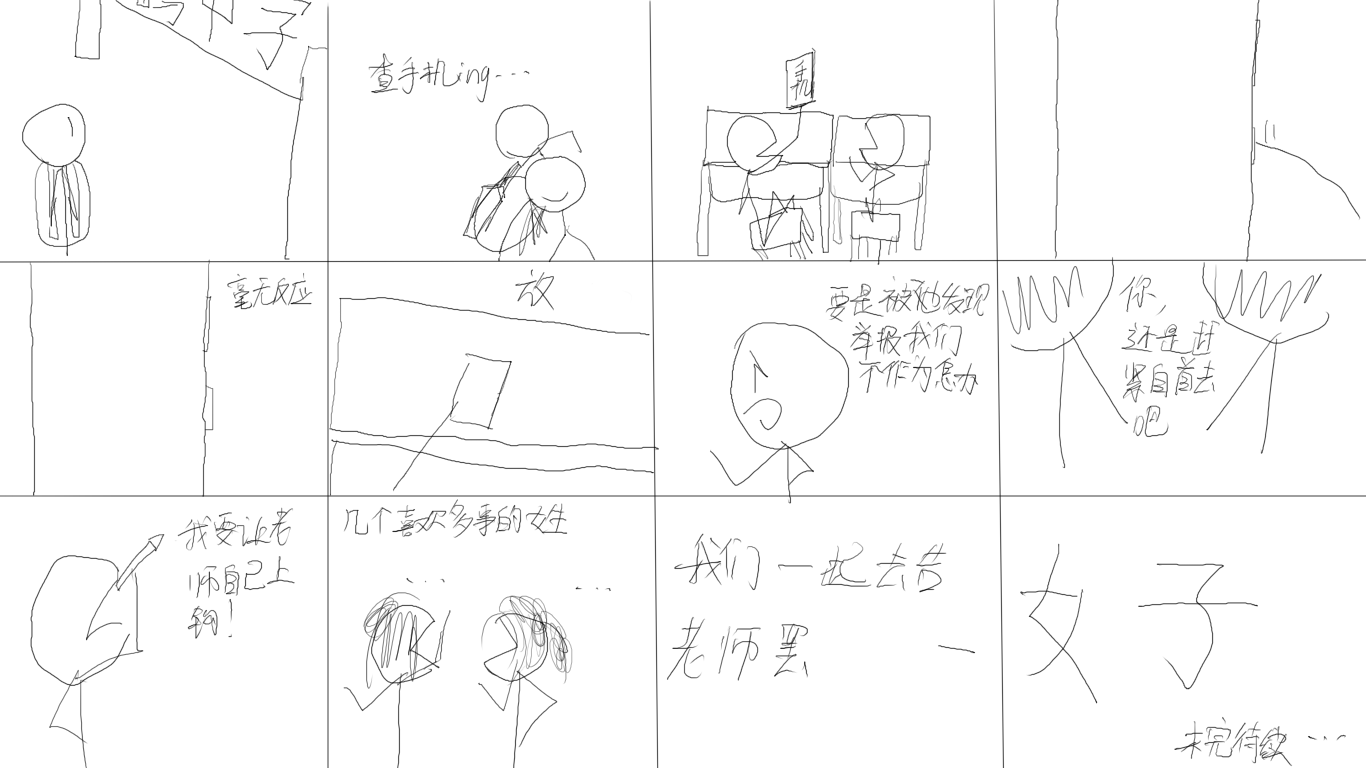 查手机ing...
手
机
毫无反应
放
要是被他发现
举报我们
不作为怎办
你,
还是赶
紧自首去
吧
我要让老
师自己上
钩!
几个喜欢多事的女生
... ...
我们一起去告
老师罢 一
女子
未完待续...